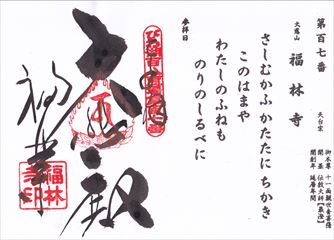 第百七番
大慈山 福林寺 天台宗
御本尊 十一面観世音菩薩
開基 伝教大師【最澄】
開創年 延暦年間
さしむかふ かたたに ちかき
このはまや
わたしのふねも
のりのしるべに
参拝日
大悲殿
福林寺
福林寺印